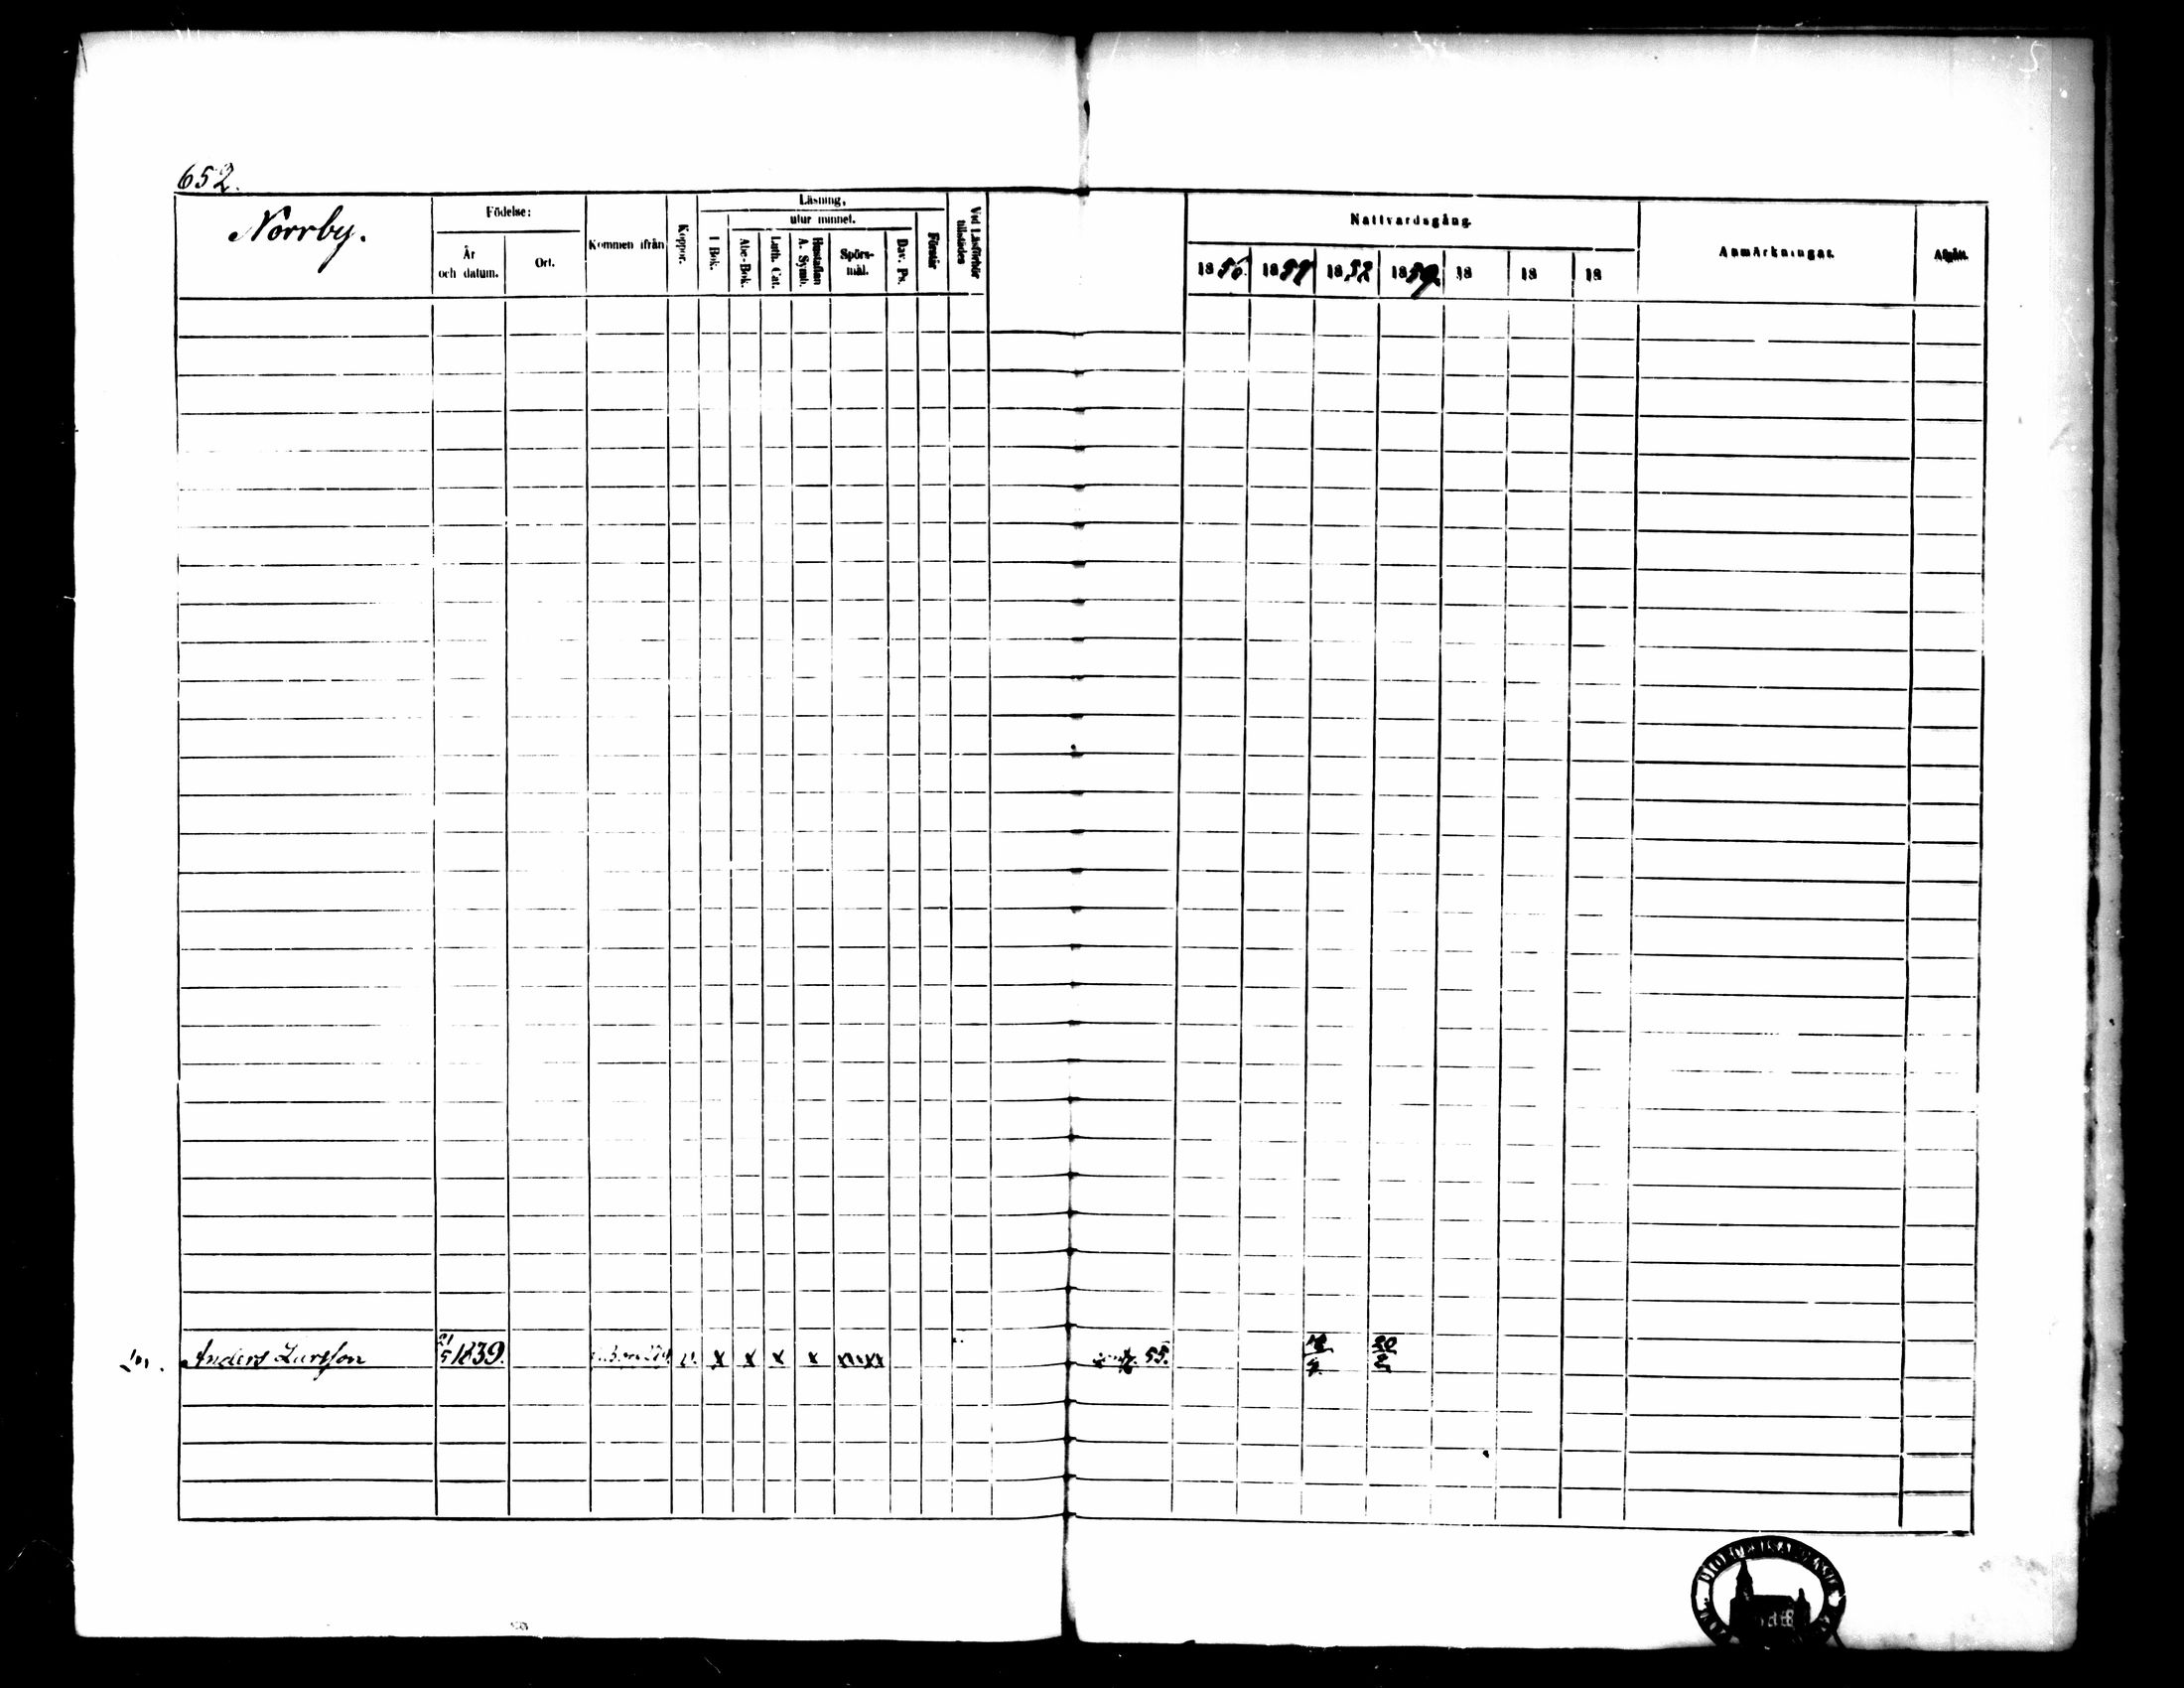 652.
Norrby.
Födelse:
År
och datum.
Ort.
Kommen ifrån
Koppor.
Läsning,
utur minnet.
I Bok.
Abc-Bok.
Luth. Cat.
Hustaflan
A. Symb.
Spörs-
mål.
Dav. Ps.
Förstår
Vid Läsförhör
tillstädes
Nattvardsgång.
1856. 1857 1858 1859. 18 18 18
Anmärkningar.
Afgått.
Anders Larsson 21/5 1839. v. x x x x 55. 20/5